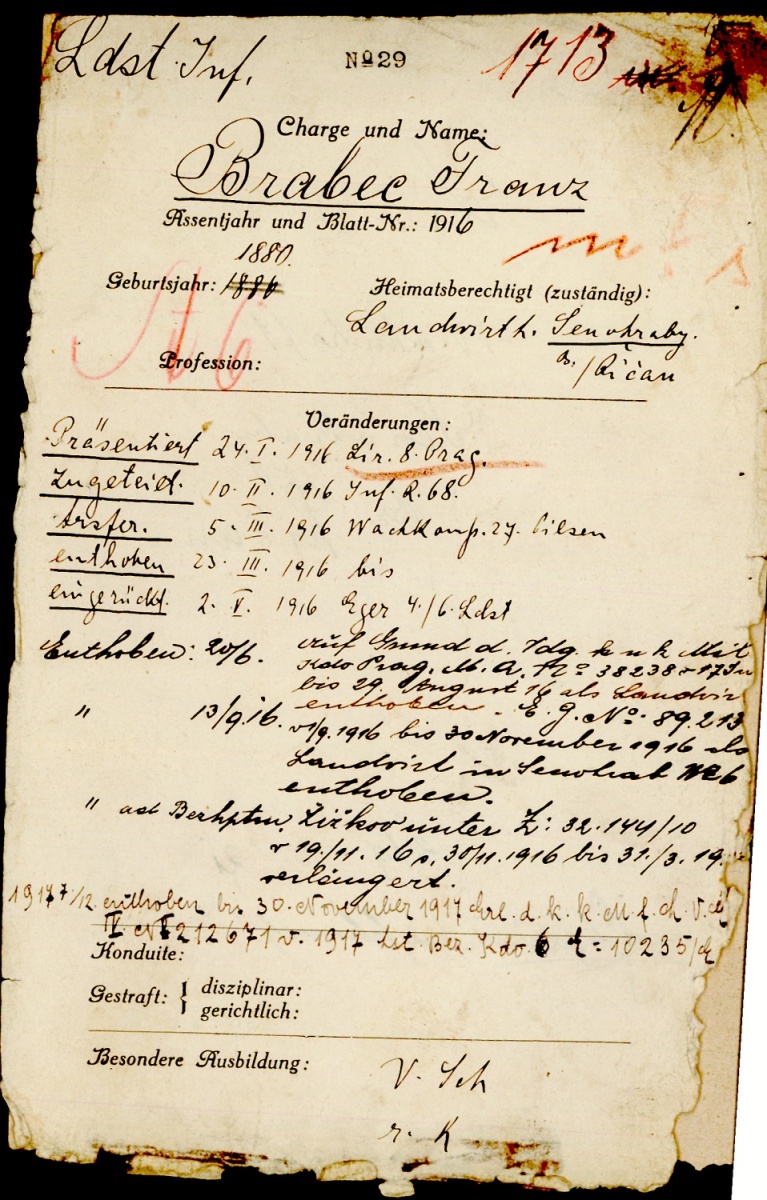 Ldst. Inf. № 29 1713
Charge und Name:
Brabec Franz
Assentjahr und Blatt-Nr.: 1916
1880.
Geburtsjahr: 1886
Heimatsberechtigt (zuständig):
Landwirth. Senohraby.
B./Říčan
Profession:
Veränderungen:
Präsentiert 24. I. 1916 Lir. 8. Prag.
Zugeteid. 10. II. 1916 Inf. R. 68.
Trsfer. 5. III. 1916 Wachkomp. 27. Pilsen
enthoben 23. III. 1916 bis
eingerückt. 2. V. 1916 Eger 4./6. Ldst
Enthoben: 20/6. auf Grund d. Vdg. k u k Mil
Kdo Prag. M. A. № 38238
bis 29. August 16 als Landwir
enthoben. E. G. №. 89.213
" 13/9.16. v 1/9.1916 bis 30 November 1916 als
Landwirt in Senohrab № 6
enthoben.
" ad Bezhptm. Žižkov unter Z: 32.144/10
v 19./11. 16, 30/11.1916 bis 31./3. 19
verlängert.
1917 7/12. enthoben bis 30. November 1917 Erl. d. k. k. M. f.
IV № 212671 v. 1917 Lst. Bez. Kdo. 6 E = 10235/
Konduite:
Gestraft: { disziplinar:
gerichtlich:
Besondere Ausbildung:
V. Sch
r. K